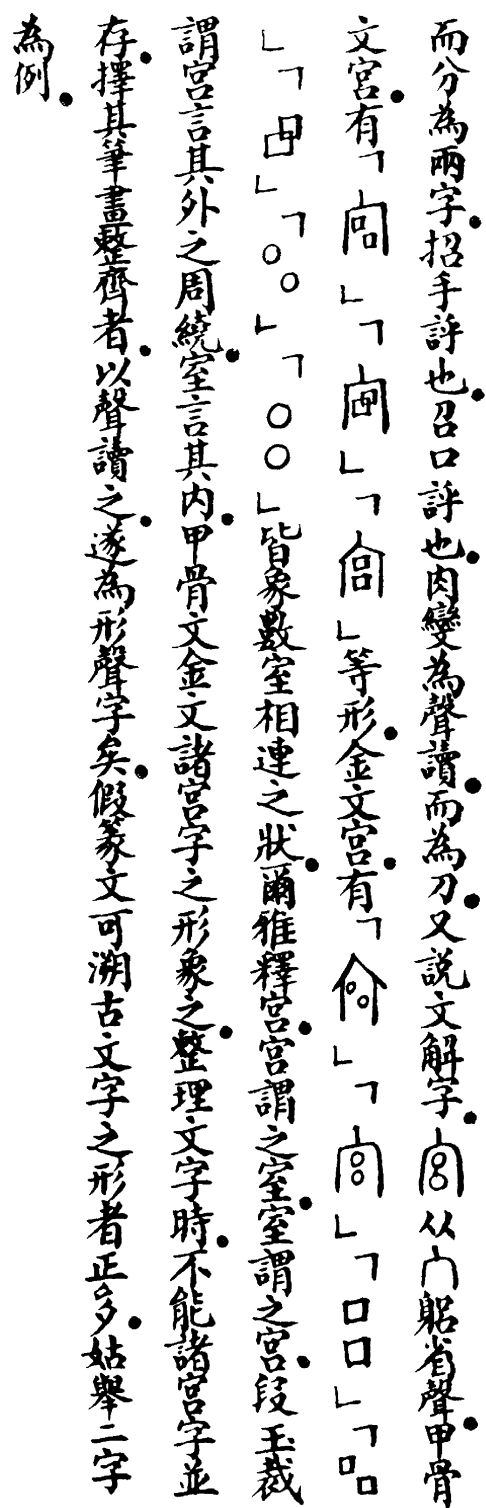 而分為兩字。招手評也。召口評也。肉變為聲讀。而為刀。又說文解字。宮从宀躳省聲。甲骨
文宮。有「」「」「」等形。金文宮。有「」「」「口口」「
」「」「○○」「○○」皆象數室相連之狀。爾雅釋宮。宮謂之室。室謂之宮。段玉裁
謂宮言其外之周繞。室言其内。甲骨文金文諸宮字之形象之。整理文字時。不能諸宮字並
存。擇其筆畫整齊者。以聲讀之。遂為形聲字矣。假篆文可溯古文字之形者正多。姑舉二字
為例。